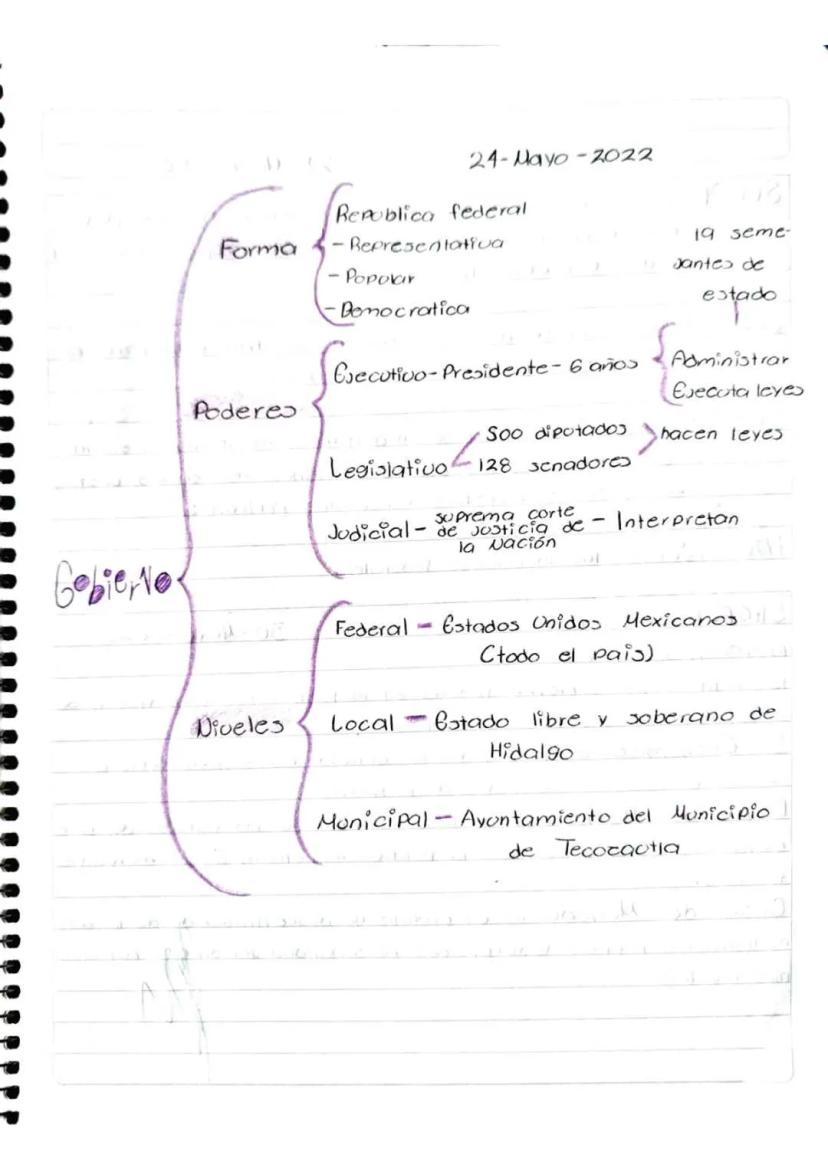 24-Mayo-2022
Gobierno
Forma
Republica federal
- Representativa
- Popular
- Democratica
Poderes
Ejecutivo - Presidente - 6 años
19 seme-
jantes de
estado
Administrar
Ejecuta leyes
Legislativo
500 diputados
128 senadores
hacen leyes
Judicial - suprema corte
de justicia de
la Nación
- Interpretan
Niveles
Federal - Estados Unidos Mexicanos
(todo el pais)
Local - Estado libre y soberano de
Hidalgo
Municipal - Ayuntamiento del Municipio
de Tecozautla